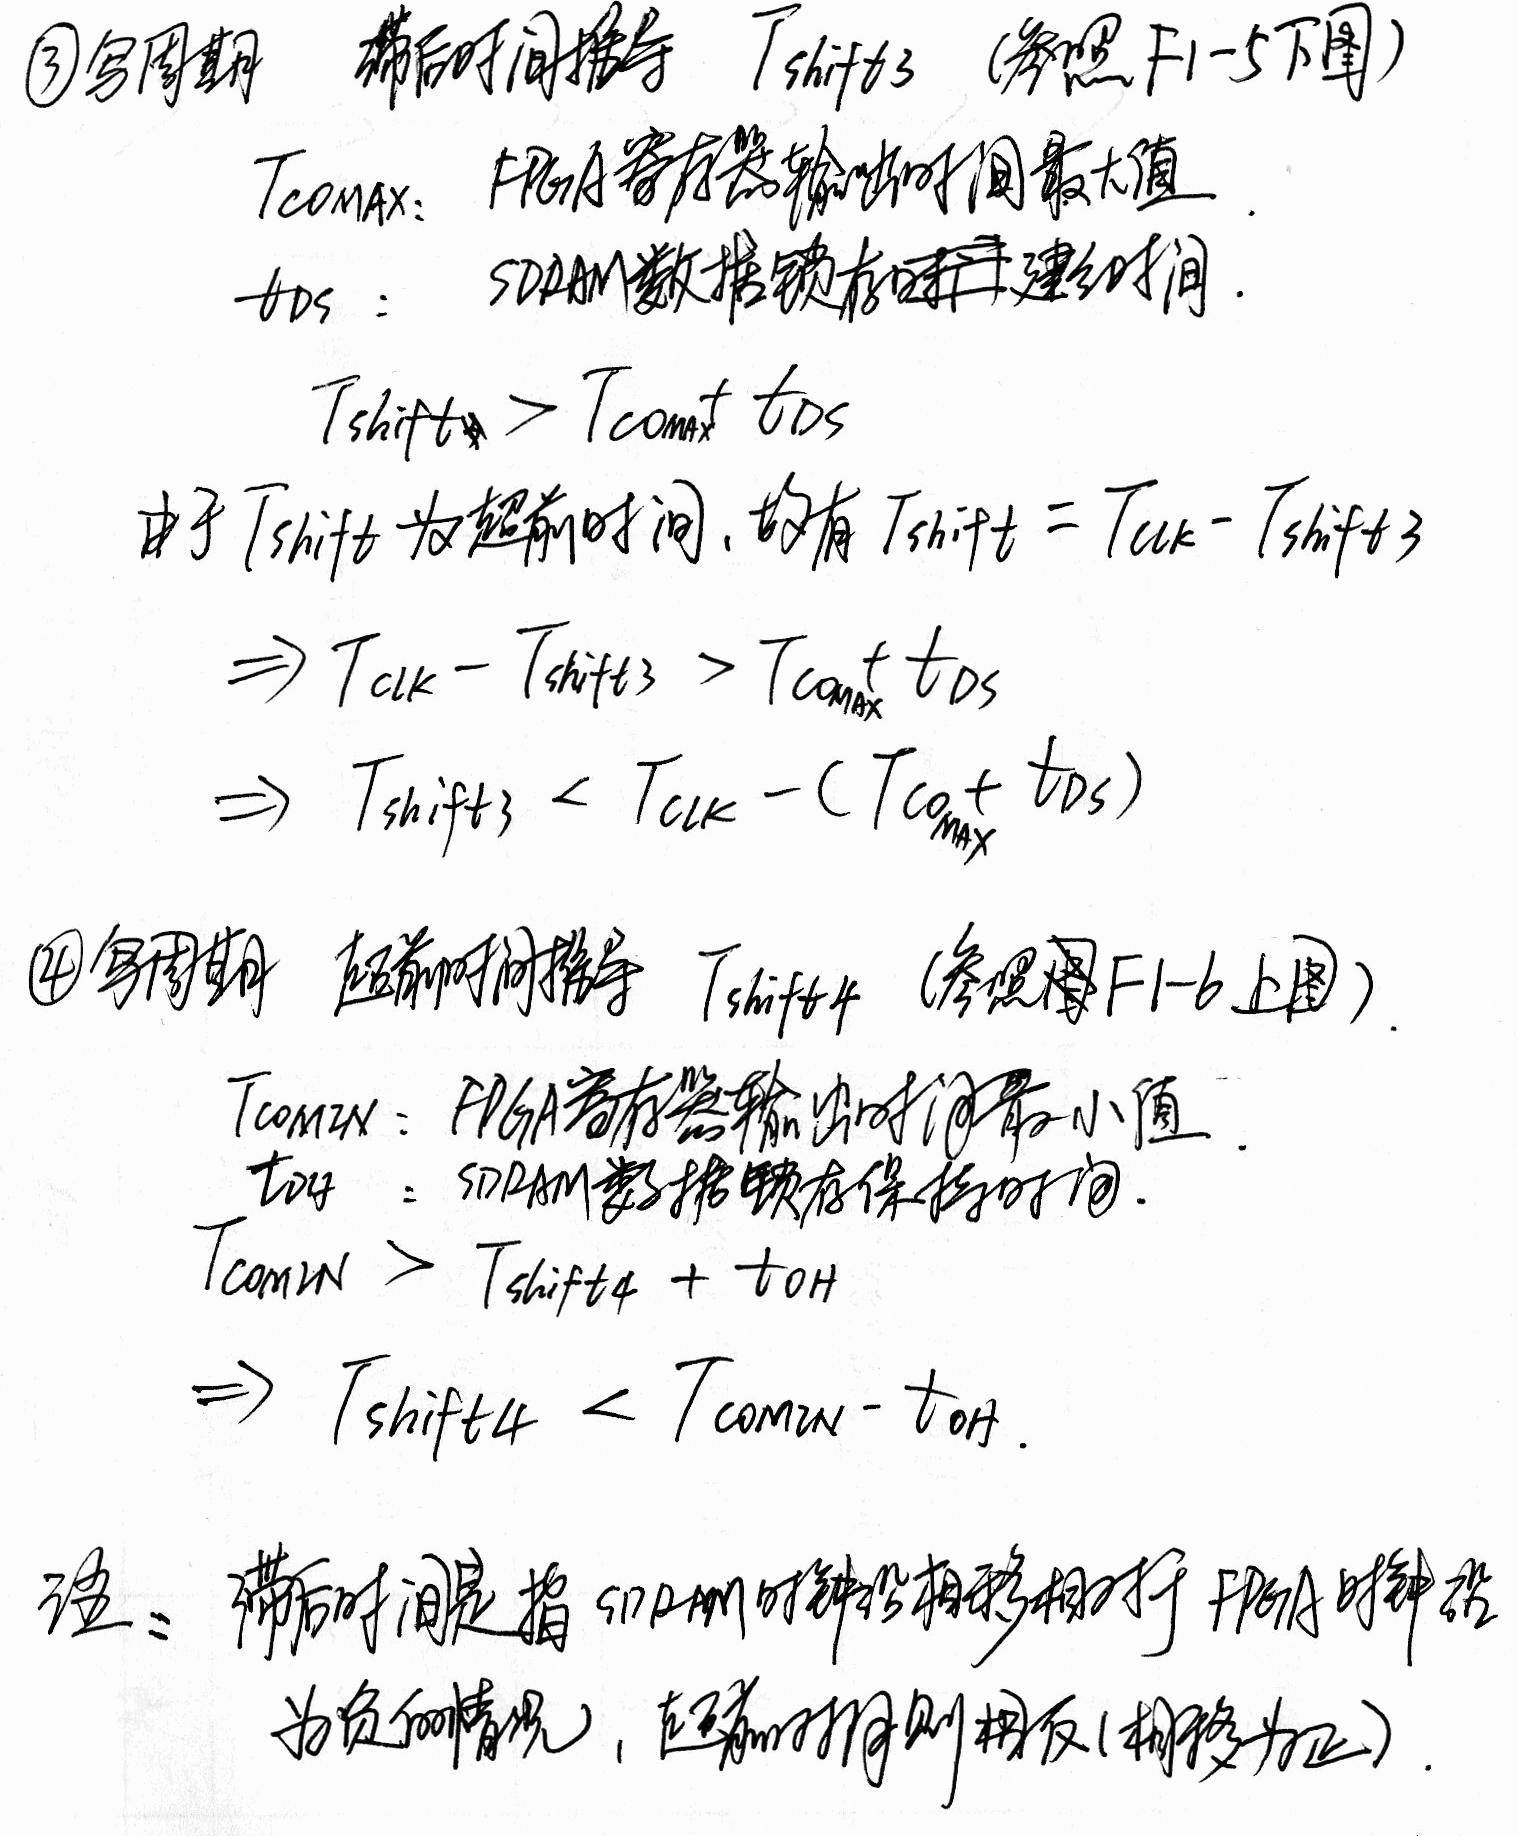 ③写周期 滞后时间推导 Tshift3 (参照F1-5下图)
TCOMAX: FPGA寄存器输出时间最大值.
tDS : SDRAM数据锁存时建立时间.
Tshift > TCOMAX + tDS
由于Tshift为超前时间,故有Tshift = TCLK - Tshift3
⇒ TCLK - Tshift3 > TCOMAX + tDS
⇒ Tshift3 < TCLK - (TCOMAX + tDS)
④写周期 超前时间推导 Tshift4 (参照图F1-6上图).
TCOMIN: FPGA寄存器输出时间最小值.
tDH : SDRAM数据锁存保持时间.
TCOMIN > Tshift4 + tOH
⇒ Tshift4 < TCOMIN - tOH.
注: 滞后时间是指SDRAM时钟沿相移相对于FPGA时钟沿
为负的情况,超前时间则相反(相移为正).